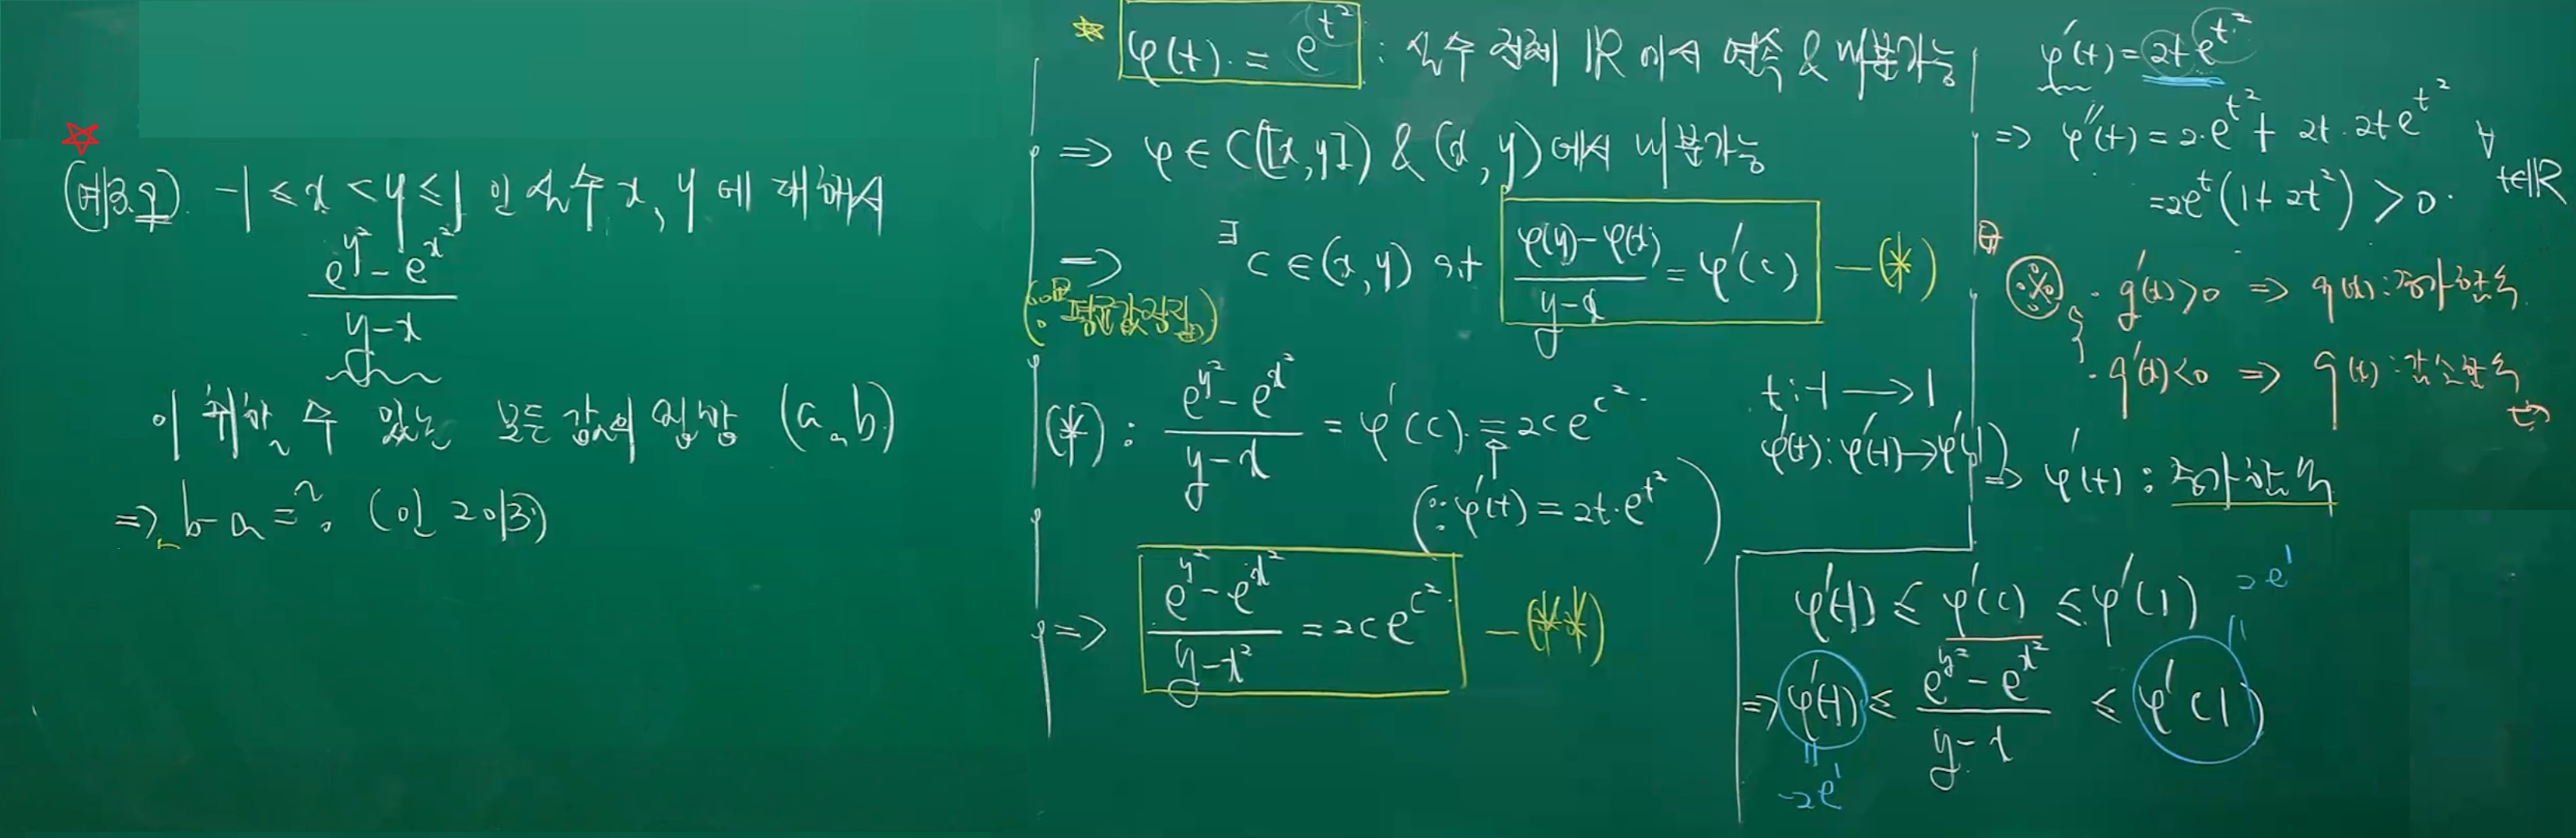 (예제3.9) -1 ≤ x < y ≤ 1 인 실수 x, y 에 대해서
e^{y^2} - e^{x^2}
y-x
이 취할 수 있는 모든 값의 집합 (a, b)
⇒ b-a = ? (인 2013)
φ(t) = e^{t^2} : 실수 전체 ℝ 에서 연속 & 미분가능
⇒ φ ∈ C([x,y]) & (x, y)에서 미분가능
⇒ ∃c ∈ (x, y) s.t (φ(y)-φ(x))/(y-x) = φ'(c) —(*)
(∵ 평균값정리)
(*) : (e^{y^2} - e^{x^2})/(y-x) = φ'(c) = 2c e^{c^2}
(∵ φ'(t) = 2t·e^{t^2})
⇒ (e^{y^2} - e^{x^2})/(y-x^2) = 2c e^{c^2} —(**)
φ'(t) = 2t e^{t^2}
⇒ φ''(t) = 2·e^{t^2} + 2t·2t e^{t^2} ∀ t∈ℝ
= 2e^{t}(1+2t^2) > 0.
※ · g'(x)>0 ⇒ g(x) : 증가함수
· g'(x)<0 ⇒ g(x) : 감소함수
t : -1 → 1
φ'(t) : φ'(-1) → φ'(1)
⇒ φ'(t) : 증가함수
φ'(-1) ≤ φ'(c) ≤ φ'(1) 2e^1
⇒ φ'(-1) ≤ (e^{y^2} - e^{x^2})/(y-x) ≤ φ'(1)
-2e^1